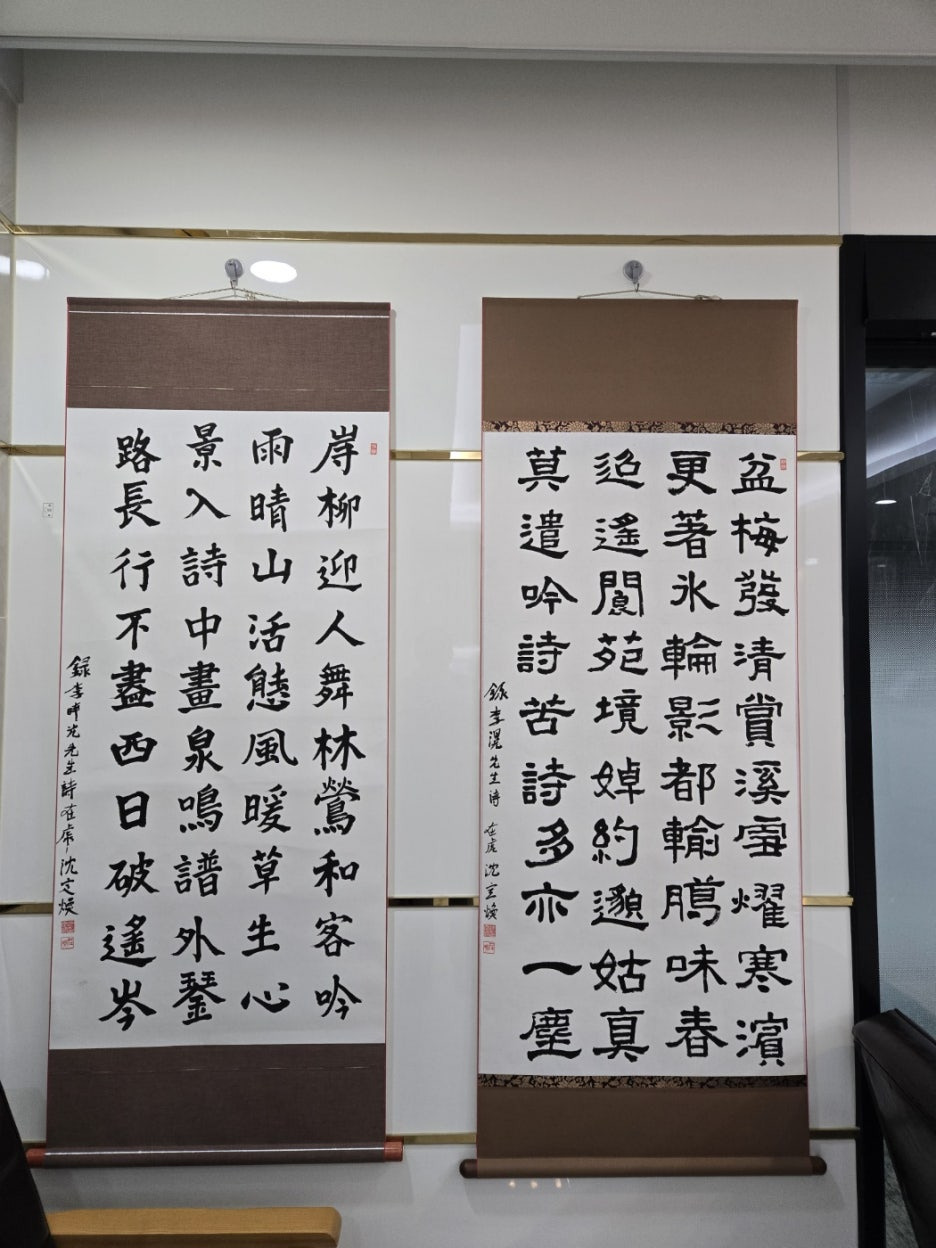 盆梅發清賞溪雪耀寒濱
更著氷輪影都輸臘味春
迢遙閬苑境婥約邈姑真
莫遣吟詩苦詩多亦一塵
錄李滉先生詩 在虎 沈定煥
岸柳迎人舞林鶯和客吟
雨晴山活態風暖草生心
景入詩中畫泉鳴譜外琴
路長行不盡西日破遙岑
錄李晬光先生詩在虎沈定煥